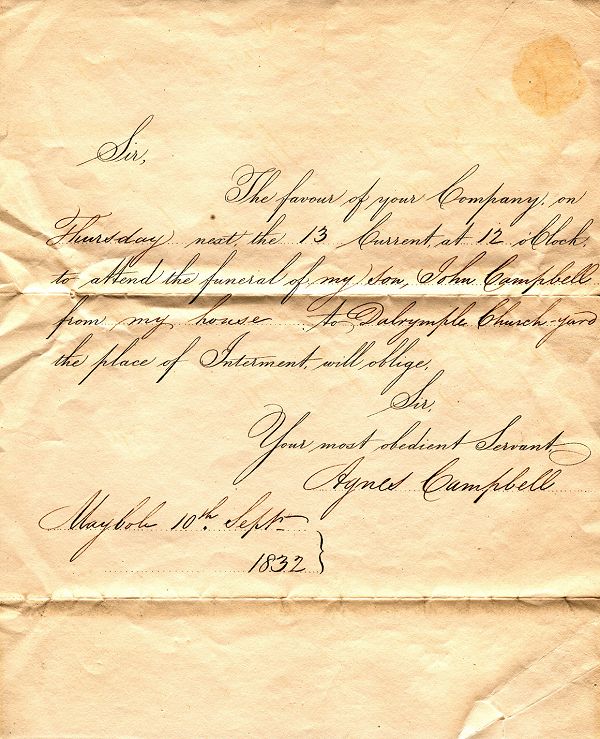 Sir,
The favour of your Company, on
Thursday next, the 13 Current, at 12 o'Clock,
to attend the funeral of my son, John Campbell
from my house to Dalrymple Church-yard
the place of Interment, will oblige,
Sir,
Your most obedient Servant,
Agnes Campbell
Maybole 10th. Sept
1832